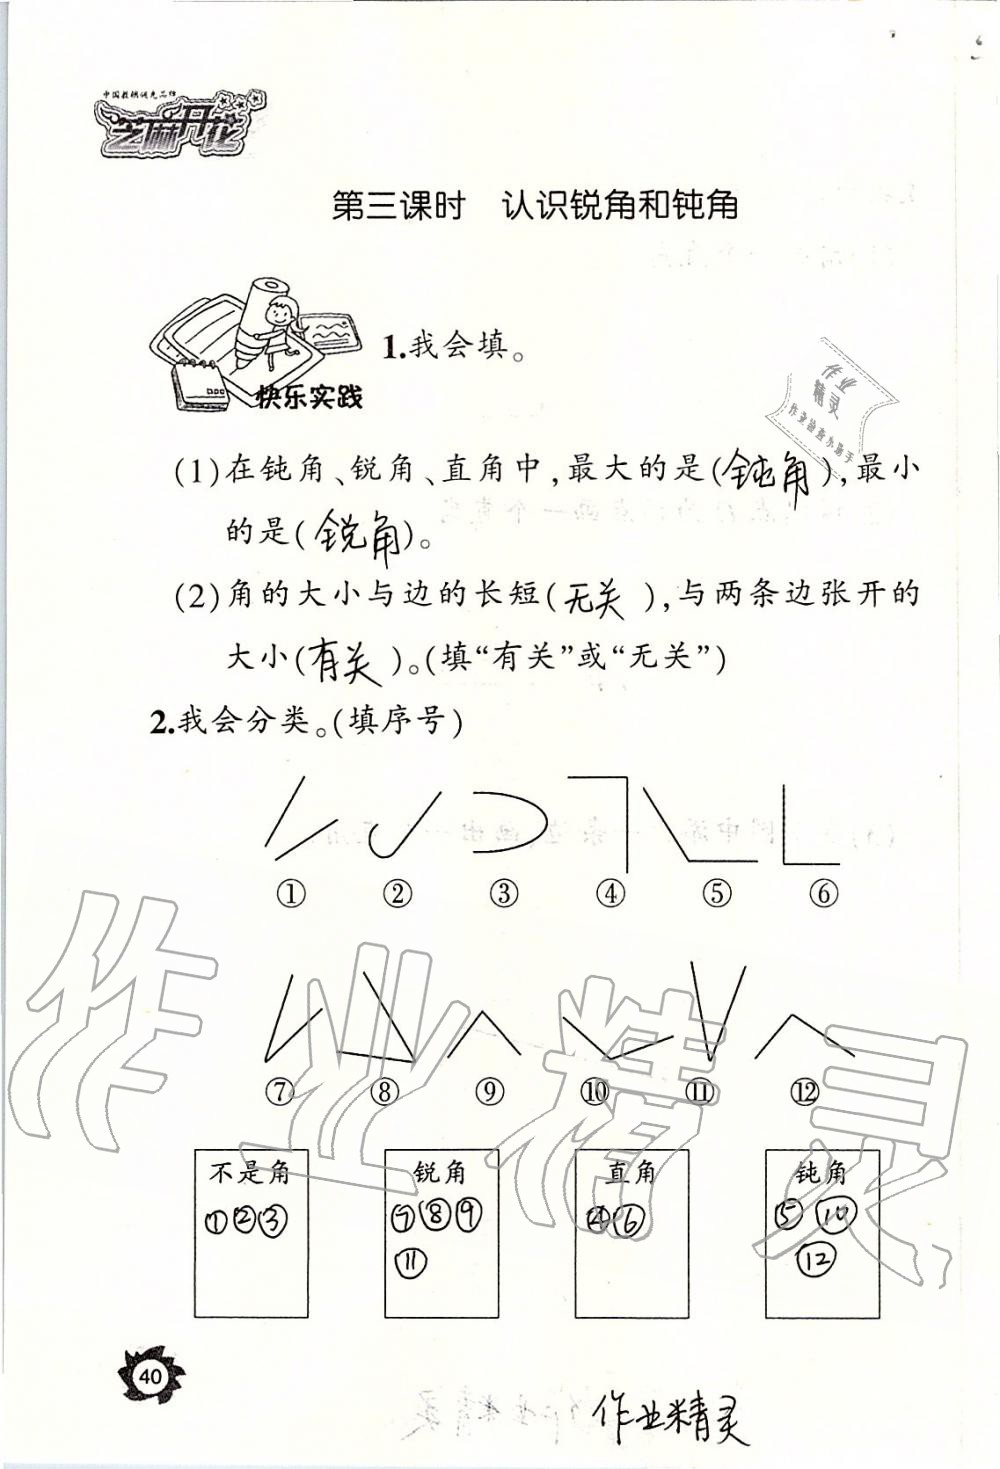 中国教辅领先品牌
芝麻开花
第三课时 认识锐角和钝角
快乐实践
1.我会填。
作业
精灵
作业检查小助手
(1)在钝角、锐角、直角中,最大的是(钝角),最小
的是(锐角)。
(2)角的大小与边的长短(无关),与两条边张开的
大小(有关)。(填“有关”或“无关”)
2.我会分类。(填序号)
① ② ③ ④ ⑤ ⑥
⑦ ⑧ ⑨ ⑩ ⑪ ⑫
作业精灵
不是角 锐角 直角 钝角
①②③ ⑦⑧⑨ ④⑥ ⑤⑩
⑪ ⑫
40
作业精灵